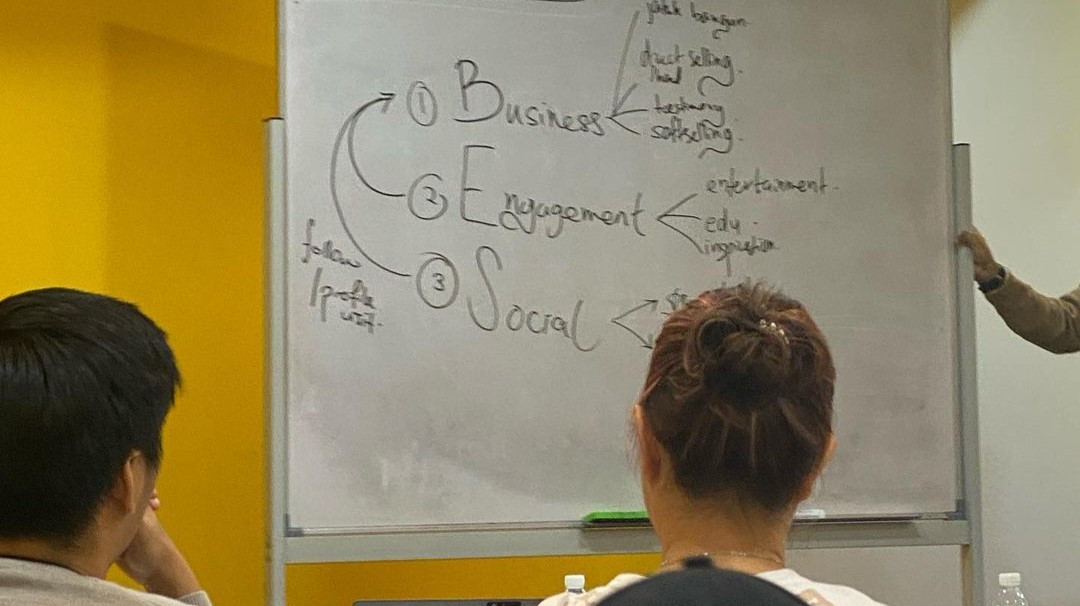 direct selling.
hard
testimony
① Business
softselling.
entertainment.
② Engagement
edu.
inspiration
follow
/profile
visit.
③ Social